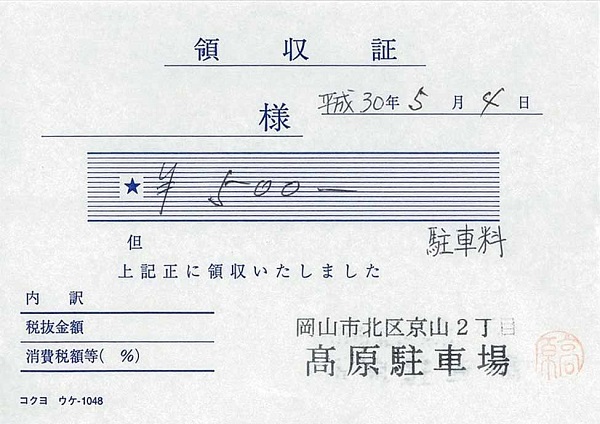 領収証
平成30年5月4日
様
★ ¥500-
但 駐車料
上記正に領収いたしました
内訳
税抜金額
消費税額等( %)
岡山市北区京山2丁目
髙原駐車場
コクヨ ウケ-1048